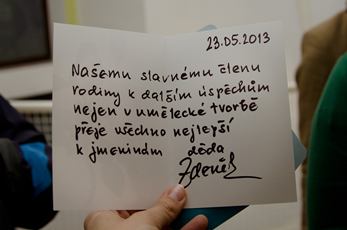 23.05.2013
Našemu slavnému členu
rodiny k dalším úspěchům
nejen v umělecké tvorbě
přeje všechno nejlepší
k jmeninám děda
Zdeněk